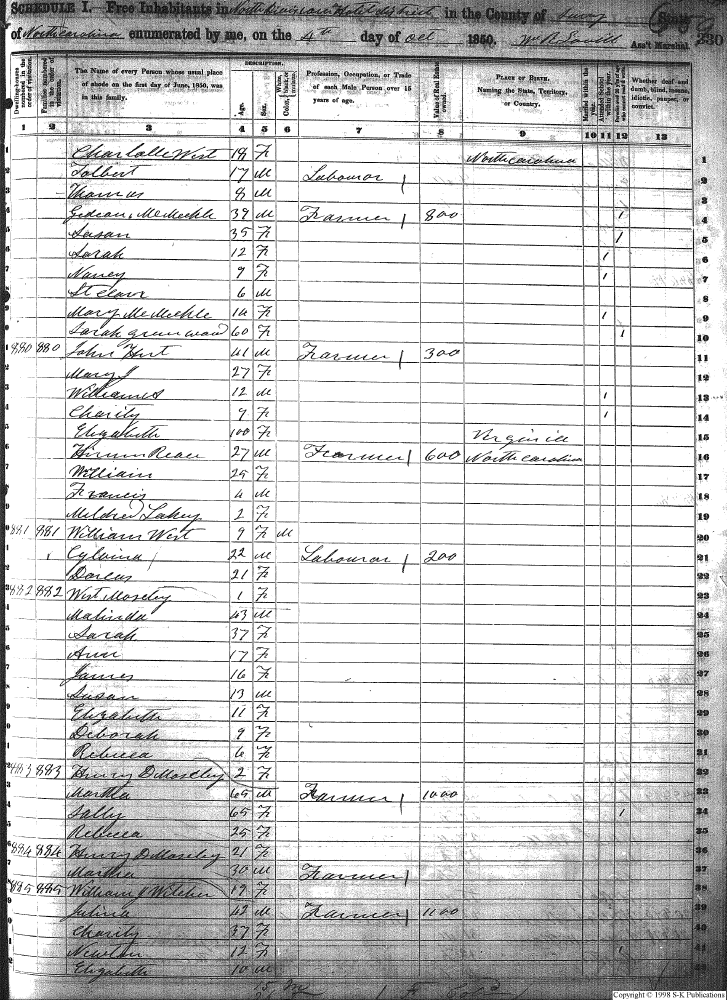 SCHEDULE I.—Free Inhabitants in North Division Hotel district in the County of Surry State
of North carolina enumerated by me, on the 4th day of Oct 1850. Ass't Marshal 230
Dwelling-houses numbered in the order of visitation.
Families numbered in the order of visitation.
The Name of every Person whose usual place of abode on the first day of June, 1850, was in this family.
DESCRIPTION.
Age.
Sex.
Color,
Profession, Occupation, or Trade of each Male Person over 15 years of age.
Value of Real Estate owned.
PLACE OF BIRTH. Naming the State, Territory, or Country.
Married within the year.
Attended School within the year.
Whether deaf and dumb, blind, insane, idiotic, pauper, or convict.
1 2 3 4 5 6 7 8 9 10 11 12 13
Charlotte West 18 F North carolina 1
Tolbert 17 M Labourer / 2
Thomas 8 M 3
Gideon McMeekle 39 M Farmer / 800 1 4
Susan 35 F 1 5
Sarah 12 F 1 6
Nancy 9 F 1 7
St Clair 6 M 8
Mary McMeekle 14 F 1 9
Sarah greenwood 60 F 1 10
880 880 John Hurt 41 M Farmer / 300 11
Mary J 27 F 12
William 12 M 1 13
Charity 9 F 1 14
Elizabeth 100 F Virginia 15
27 M Farmer / 600 North carolina 16
William 25 F 17
Francis 4 M 18
Mildred Lakey 2 F 19
881 881 William West 9 F M 20
22 M Labourer / 200 21
Dorcas 21 F 22
882 882 West Moseley 1 F 23
Malinda 43 M 24
Sarah 37 F 25
Ann 17 F 26
James 16 F 27
Susan 13 M 28
Elizabeth 11 F 29
Deborah 9 F 30
Rebecca 6 F 31
883 883 Henry D Moseley 2 F 32
Martha 65 M Farmer / 1000 33
Sally 65 F 1 34
Rebecca 25 F 35
884 884 Henry D Moseley 21 F 36
Martha 30 M Farmer / 37
885 885 William J Witcher 19 F 38
Julina 42 M Farmer / 1100 39
Charity 37 F 40
Newton 12 F 1 41
Elizabeth 10 M 42
Copyright © 1998 S-K Publications